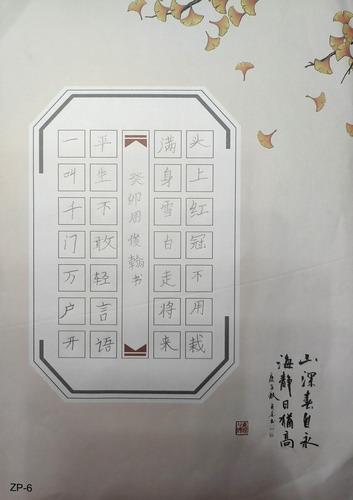 头上红冠不用栽
满身雪白走将来
癸卯周俊翰书
平生不敢轻言语
一叫千门万户开
山深春自永
海靜日猶高
ZP-6